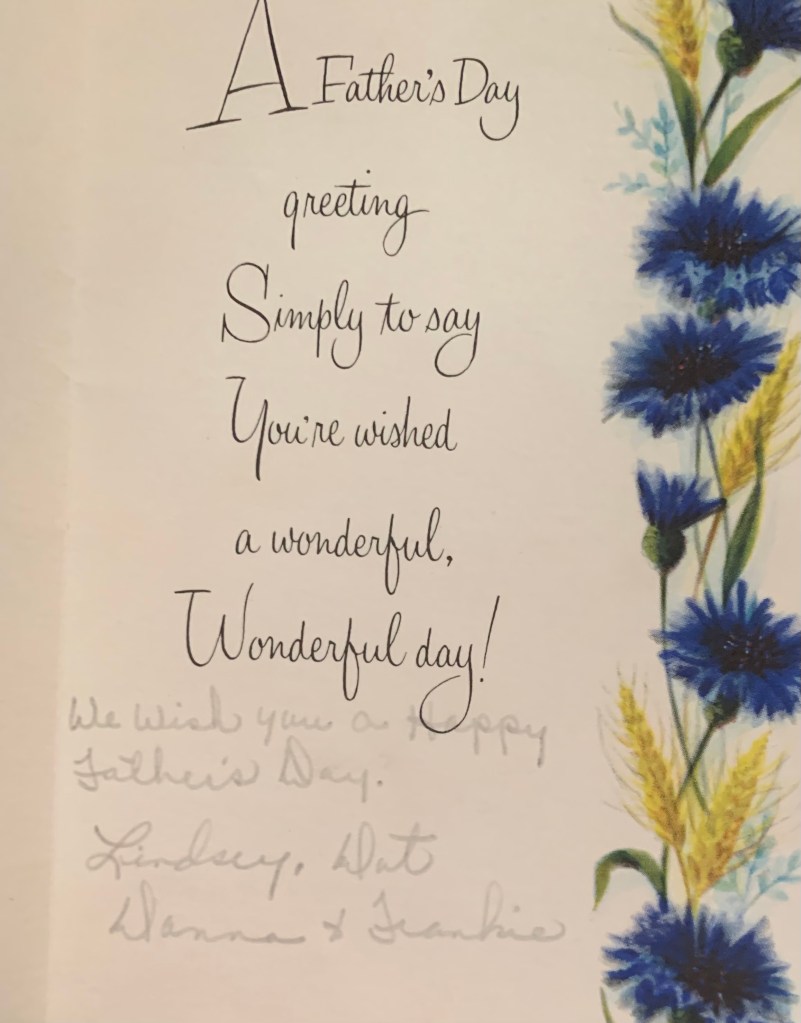 A Father's Day
greeting
Simply to say
You're wished
a wonderful,
Wonderful day!
We Wish you a Happy
Father's Day.
Lindsey, Dot
Danna & Frankie